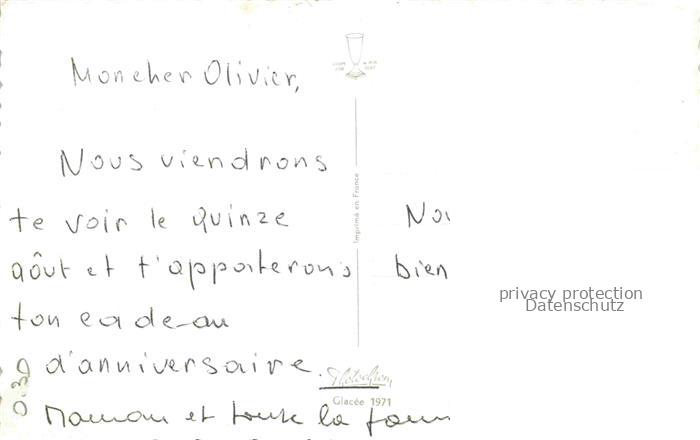 Mon cher Olivier,
Nous viendrons
te voir le quinze
août et t'apporterons
ton cadeau
d'anniversaire.
Maman et toute la fam
Nou
bien
Imprimé en France
Photochrom
Glacée 1971
0.30
privacy protection
Datenschutz